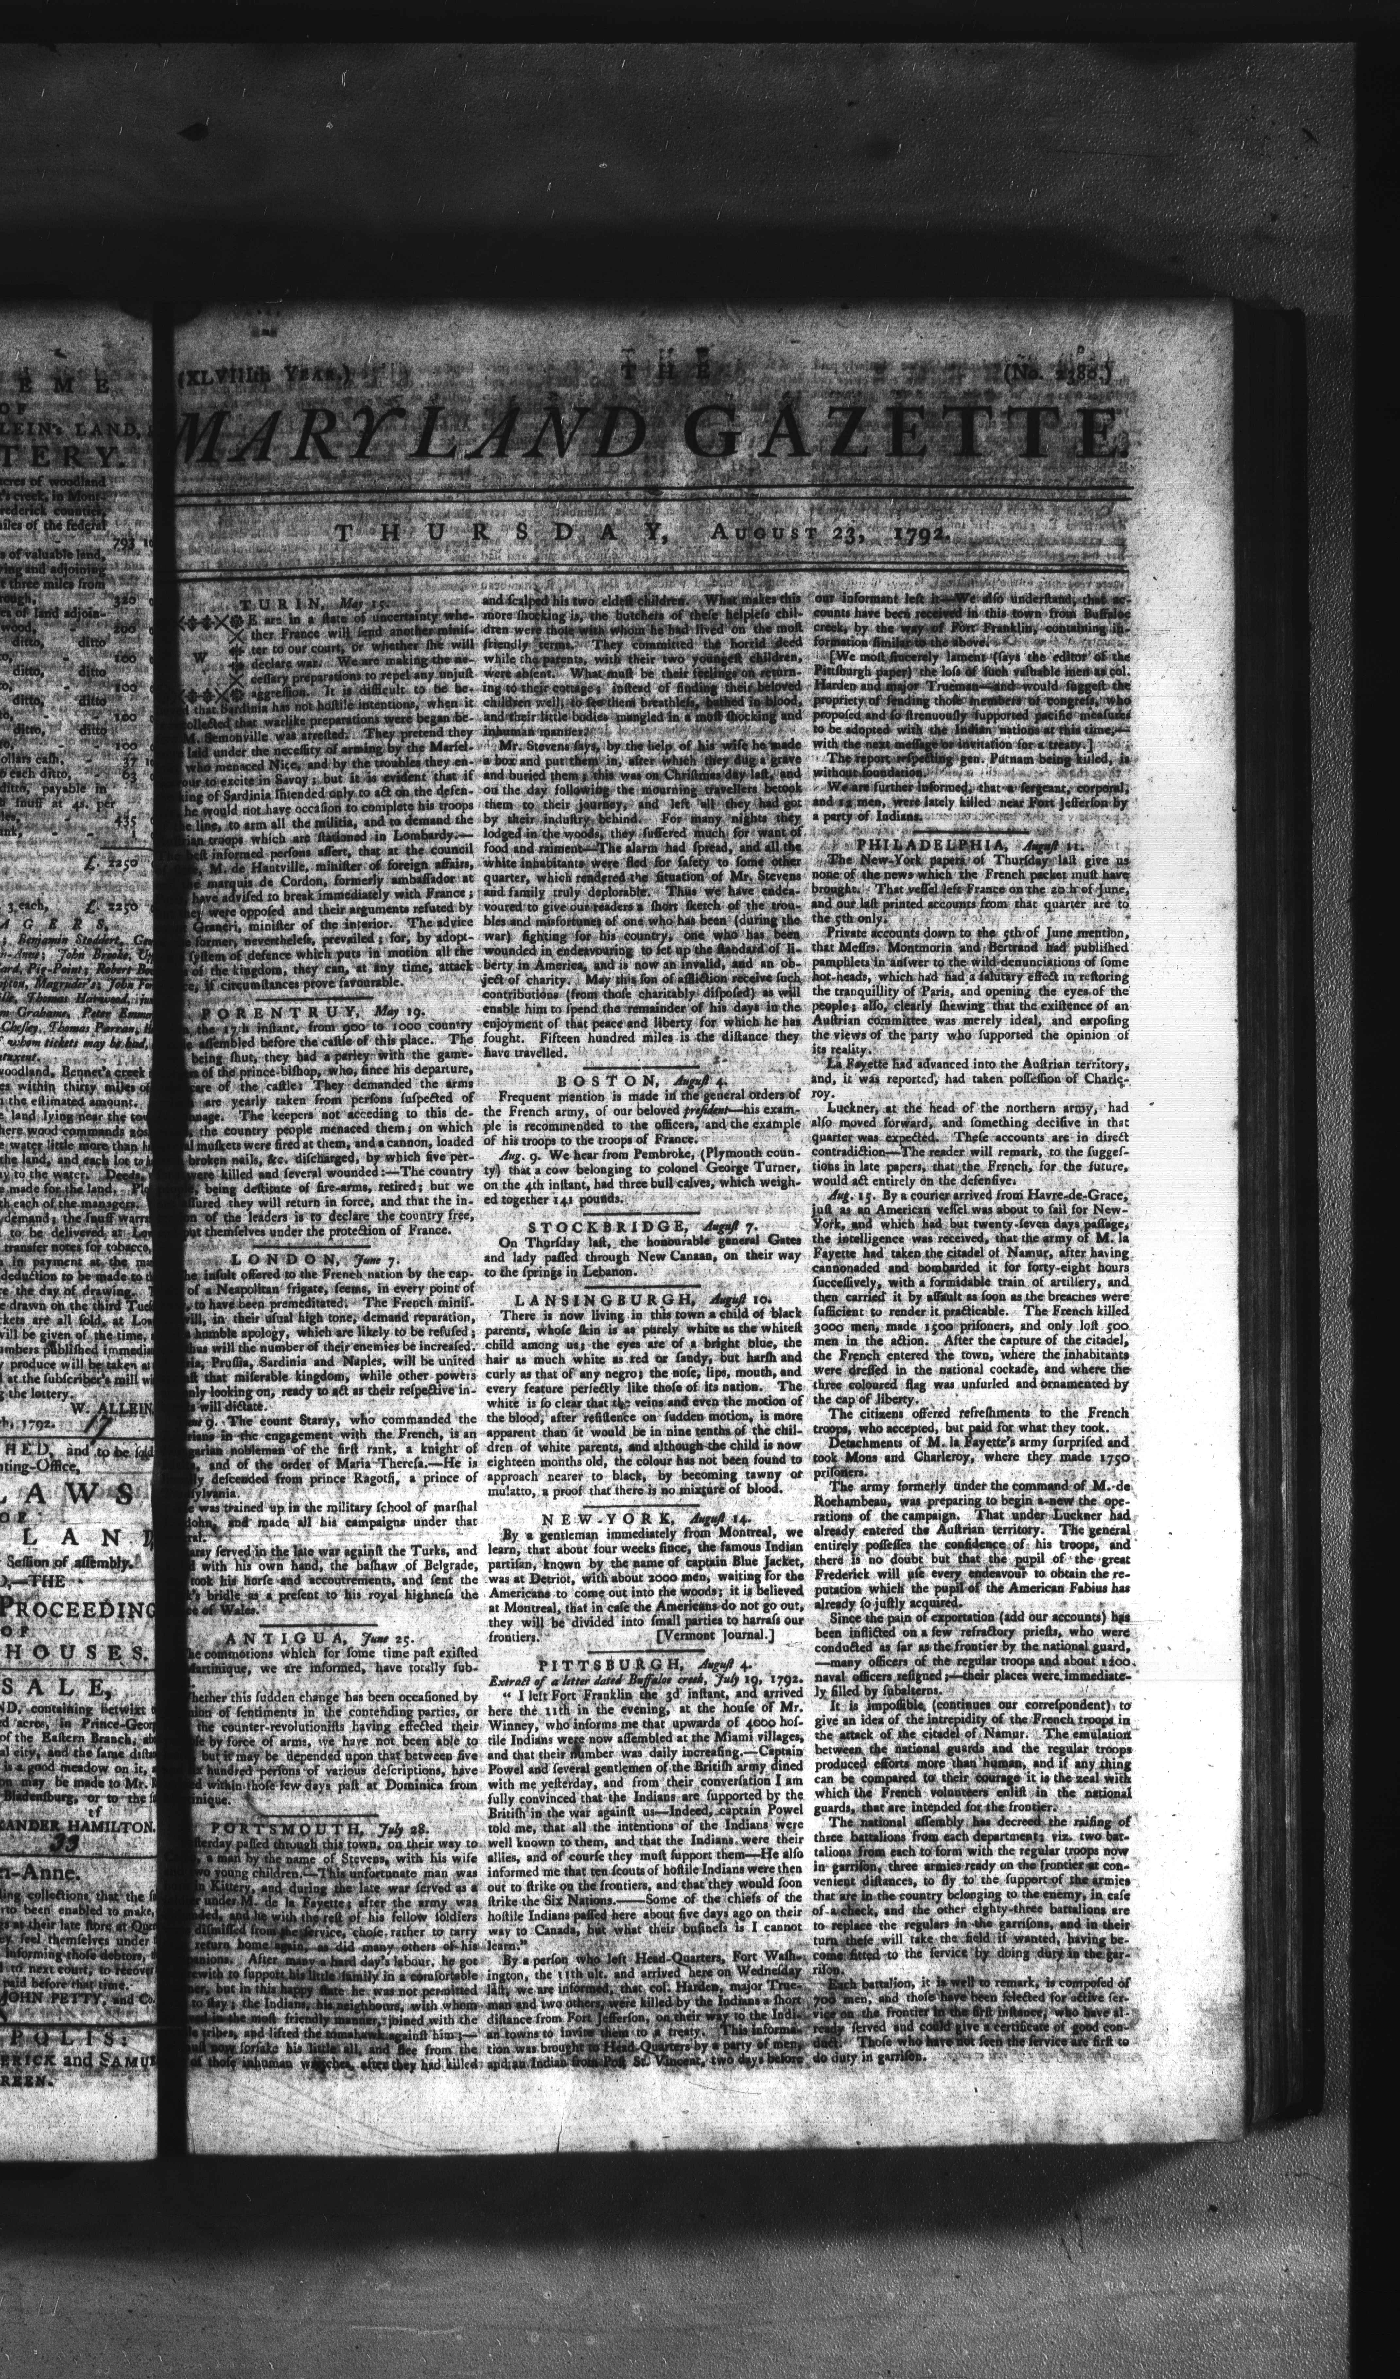 E M E
OF
LEIN's LAND,
TERY.
acres of woodland
's creek, in Mont-
rederick counties,
miles of the federal
793
s of valuable land,
ying and adjoining
t three miles from
rough, 320
es of land adjoin-
wood, 200
ditto, ditto
100
ditto, ditto
100
ditto, ditto
100
ditto,
100
ollars cash, 37
o each ditto, 63
ditto, payable in
snuff at 4s. per
435
£. 2250
3 each, £. 2250
A G E R S,
W. ALLEIN
h, 1792. 17
HED, and to be sold
nting-Office,
L A W S
OF
L A N D,
Session of assembly.
D,—THE
PROCEEDING
OF
H O U S E S.
S A L E,
ANDER HAMILTON.
33
n-Anne.
JOHN PETTY, and Co.
P O L I S:
ERICK and SAMU
REEN.
(XLVIIIth YEAR.) THE (No. 2380.)
MARYLAND GAZETTE.
THURSDAY, AUGUST 23, 1792.
TURIN, May 15.
WE are in a state of uncertainty whe-
ther France will send another minis-
ter to our court, or whether she will
declare war. We are making the ne-
cessary preparations to repel any unjust
aggression. It is difficult to be be-
d that Sardinia has not hostile intentions, when it
collected that warlike preparations were began be-
M. Semonville was arrested. They pretend they
laid under the necessity of arming by the Marsel-
who menaced Nice, and by the troubles they en-
our to excite in Savoy; but it is evident that if
king of Sardinia intended only to act on the defen-
he would not have occasion to complete his troops
he line, to arm all the militia, and to demand the
rian troops which are stationed in Lombardy.—
best informed persons assert, that at the council
M. de Hautville, minister of foreign affairs,
he marquis de Cordon, formerly ambassador at
have advised to break immediately with France;
hey were opposed and their arguments refuted by
Graneri, minister of the interior. The advice
e former, nevertheless, prevailed; for, by adopt-
system of defence which puts in motion all the
of the kingdom, they can, at any time, attack
ce, if circumstances prove favourable.
PORENTRUY, May 19.
the 17th instant, from 900 to 1000 country
e assembled before the castle of this place. The
being shut, they had a parley with the game-
of the prince-bishop, who, since his departure,
care of the castle: They demanded the arms
are yearly taken from persons suspected of
onage. The keepers not acceding to this de-
the country people menaced them; on which
l muskets were fired at them, and a cannon, loaded
broken nails, &c. discharged, by which five per-
were killed and several wounded:—The country
being destitute of fire-arms, retired; but we
ssured they will return in force, and that the in-
on of the leaders is to declare the country free,
ut themselves under the protection of France.
LONDON, June 7.
he insult offered to the French nation by the cap-
of a Neapolitan frigate, seems, in every point of
, to have been premeditated: The French minis-
will, in their usual high tone, demand reparation,
humble apology, which are likely to be refused;
hus will the number of their enemies be increased.
ria, Prussia, Sardinia and Naples, will be united
nst that miserable kingdom, while other powers
nly looking on, ready to act as their respective in-
s will dictate.
9. The count Staray, who commanded the
rians in the engagement with the French, is an
garian nobleman of the first rank, a knight of
, and of the order of Maria Theresa.—He is
ly descended from prince Ragotsi, a prince of
sylvania.
e was trained up in the military school of marshal
dohn, and made all his campaigns under that
ral.
aray served in the late war against the Turks, and
d with his own hand, the bashaw of Belgrade,
took his horse and accoutrements, and sent the
's bridle as a present to his royal highness the
ce of Wales.
ANTIGUA, June 25.
he commotions which for some time past existed
Martinique, we are informed, have totally sub-
hether this sudden change has been occasioned by
nion of sentiments in the contending parties, or
the counter-revolutionists having effected their
se by force of arms, we have not been able to
but it may be depended upon that between five
x hundred persons of various descriptions, have
ed within those few days past at Dominica from
inique.
PORTSMOUTH, July 28.
sterday passed through this town, on their way to
, a man by the name of Stevens, with his wife
wo young children.—This unfortunate man was
in Kittery, and during the late war served as a
ier under M. de la Fayette; after the army was
nded, and he with the rest of his fellow soldiers
dismissed from the service, chose rather to tarry
return home again, as did many others of his
panions. After many a hard day's labour, he got
rewith to support his little family in a comfortable
ner, but in this happy state he was not permitted
to stay; the Indians, his neighbours, with whom
ed in the most friendly manner, joined with the
le tribes, and lifted the tomahawk against him;—
ust now forsake his little all, and flee from the
of those inhuman wretches, after they had killed
and scalped his two eldest children. What makes this
more shocking is, the butchers of these helpless chil-
dren were those with whom he had lived on the most
friendly terms. They committed the horrid deed
while the parents, with their two youngest children,
were absent. What must be their feelings on return-
ing to their cottage; instead of finding their beloved
children well, to see them breathless, bathed in blood,
and their little bodies mangled in a most shocking and
inhuman manner?
Mr. Stevens says, by the help of his wife he made
a box and put them in, after which they dug a grave
and buried them; this was on Christmas day last, and
on the day following the mourning travellers betook
them to their journey, and left all they had got
by their industry behind. For many nights they
lodged in the woods, they suffered much for want of
food and raiment—The alarm had spread, and all the
white inhabitants were fled for safety to some other
quarter, which rendered the situation of Mr. Stevens
and family truly deplorable. Thus we have endea-
voured to give our readers a short sketch of the trou-
bles and misfortunes of one who has been (during the
war) fighting for his country, one who has been
wounded in endeavouring to set up the standard of li-
berty in America, and is now an invalid, and an ob-
ject of charity. May this son of affliction receive such
contributions (from those charitably disposed) as will
enable him to spend the remainder of his days in the
enjoyment of that peace and liberty for which he has
fought. Fifteen hundred miles is the distance they
have travelled.
BOSTON, August 4.
Frequent mention is made in the general orders of
the French army, of our beloved president—his exam-
ple is recommended to the officers, and the example
of his troops to the troops of France.
Aug. 9. We hear from Pembroke, (Plymouth coun-
ty) that a cow belonging to colonel George Turner,
on the 4th instant, had three bull calves, which weigh-
ed together 141 pounds.
STOCKBRIDGE, August 7.
On Thursday last, the honourable general Gates
and lady passed through New Canaan, on their way
to the springs in Lebanon.
LANSINGBURGH, August 10.
There is now living in this town a child of black
parents, whose skin is as purely white as the whitest
child among us; the eyes are of a bright blue, the
hair as much white as red or sandy, but harsh and
curly as that of any negro; the nose, lips, mouth, and
every feature perfectly like those of its nation. The
white is so clear that the veins and even the motion of
the blood, after resistence on sudden motion, is more
apparent than it would be in nine tenths of the chil-
dren of white parents, and although the child is now
eighteen months old, the colour has not been found to
approach nearer to black, by becoming tawny or
mulatto, a proof that there is no mixture of blood.
NEW-YORK, August 14.
By a gentleman immediately from Montreal, we
learn, that about four weeks since, the famous Indian
partisan, known by the name of captain Blue Jacket,
was at Detriot, with about 2000 men, waiting for the
Americans to come out into the woods; it is believed
at Montreal, that in case the Americans do not go out,
they will be divided into small parties to harrass our
frontiers. [Vermont Journal.]
PITTSBURGH, August 4.
Extract of a letter dated Buffaloe creek, July 19, 1792.
" I left Fort Franklin the 3d instant, and arrived
here the 11th in the evening, at the house of Mr.
Winney, who informs me that upwards of 4000 hos-
tile Indians were now assembled at the Miami villages,
and that their number was daily increasing.—Captain
Powel and several gentlemen of the British army dined
with me yesterday, and from their conversation I am
fully convinced that the Indians are supported by the
British in the war against us—Indeed, captain Powel
told me, that all the intentions of the Indians were
well known to them, and that the Indians were their
allies, and of course they must support them—He also
informed me that ten scouts of hostile Indians were then
out to strike on the frontiers, and that they would soon
strike the Six Nations.——Some of the chiefs of the
hostile Indians passed here about five days ago on their
way to Canada, but what their business is I cannot
learn."
By a person who left Head-Quarters, Fort Wash-
ington, the 11th ult. and arrived here on Wednesday
last, we are informed, that col. Harden, major True-
man and two others, were killed by the Indians a short
distance from Fort Jefferson, on their way to the Indi-
an towns to invite them to a treaty. This informa-
tion was brought to Head-Quarters by a party of men,
and an Indian from Post St. Vincent, two days before
our informant left it—We also understand, that ac-
counts have been received in this town from Buffaloe
creek, by the way of Fort Franklin, containing in-
formation similar to the above.
[We most sincerely lament (says the editor of the
Pittsburgh paper) the loss of such valuable men as col.
Harden and major Trueman—and would suggest the
propriety of sending those members of congress, who
proposed and so strenuously supported pacific measures
to be adopted with the Indian nations at this time,—
with the next message or invitation for a treaty.]
The report respecting gen. Putnam being killed, is
without foundation.
We are further informed, that a sergeant, corporal,
and 12 men, were lately killed near Fort Jefferson by
a party of Indians.
PHILADELPHIA, August 11.
The New-York papers of Thursday last give us
none of the news which the French packet must have
brought. That vessel left France on the 20th of June,
and our last printed accounts from that quarter are to
the 5th only.
Private accounts down to the 5th of June mention,
that Messrs. Montmorin and Bertrand had published
pamphlets in answer to the wild denunciations of some
hot-heads, which had had a salutary effect in restoring
the tranquillity of Paris, and opening the eyes of the
people; also, clearly shewing that the existence of an
Austrian committee was merely ideal, and exposing
the views of the party who supported the opinion of
its reality.
La Fayette had advanced into the Austrian territory,
and, it was reported, had taken possession of Charle-
roy.
Luckner, at the head of the northern army, had
also moved forward, and something decisive in that
quarter was expected. These accounts are in direct
contradiction—The reader will remark, to the sugges-
tions in late papers, that the French, for the future,
would act entirely on the defensive.
Aug. 15. By a courier arrived from Havre-de-Grace,
just as an American vessel was about to sail for New-
York, and which had but twenty-seven days passage,
the intelligence was received, that the army of M. la
Fayette had taken the citadel of Namur, after having
cannonaded and bombarded it for forty-eight hours
successively, with a formidable train of artillery, and
then carried it by assault as soon as the breaches were
sufficient to render it practicable. The French killed
3000 men, made 1500 prisoners, and only lost 500
men in the action. After the capture of the citadel,
the French entered the town, where the inhabitants
were dressed in the national cockade, and where the
three coloured flag was unfurled and ornamented by
the cap of liberty.
The citizens offered refreshments to the French
troops, who accepted, but paid for what they took.
Detachments of M. la Fayette's army surprised and
took Mons and Charleroy, where they made 1750
prisoners.
The army formerly under the command of M. de
Rochambeau, was preparing to begin a-new the ope-
rations of the campaign. That under Luckner had
already entered the Austrian territory. The general
entirely possesses the confidence of his troops, and
there is no doubt but that the pupil of the great
Frederick will use every endeavour to obtain the re-
putation which the pupil of the American Fabius has
already so justly acquired.
Since the pain of exportation (add our accounts) has
been inflicted on a few refractory priests, who were
conducted as far as the frontier by the national guard,
—many officers of the regular troops and about 1200
naval officers resigned;—their places were immediate-
ly filled by subalterns.
It is impossible (continues our correspondent) to
give an idea of the intrepidity of the French troops in
the attack of the citadel of Namur. The emulation
between the national guards and the regular troops
produced efforts more than human, and if any thing
can be compared to their courage it is the zeal with
which the French volunteers enlist in the national
guards, that are intended for the frontier.
The national assembly has decreed the raising of
three battalions from each department; viz. two bat-
talions from each to form with the regular troops now
in garrison, three armies ready on the frontier at con-
venient distances, to fly to the support of the armies
that are in the country belonging to the enemy, in case
of a check, and the other eighty-three battalions are
to replace the regulars in the garrisons, and in their
turn these will take the field if wanted, having be-
come fitted to the service by doing duty in the gar-
rison.
Each battalion, it is well to remark, is composed of
700 men, and those have been selected for active ser-
vice on the frontier in the first instance, who have al-
ready served and could give a certificate of good con-
duct. Those who have not seen the service are first to
do duty in garrison.